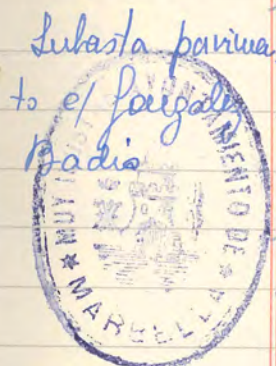 Subasta pavimen
to c/ Gonzalez
Badia
MUY ILUSTRE AYUNTAMIENTO DE
MARBELLA